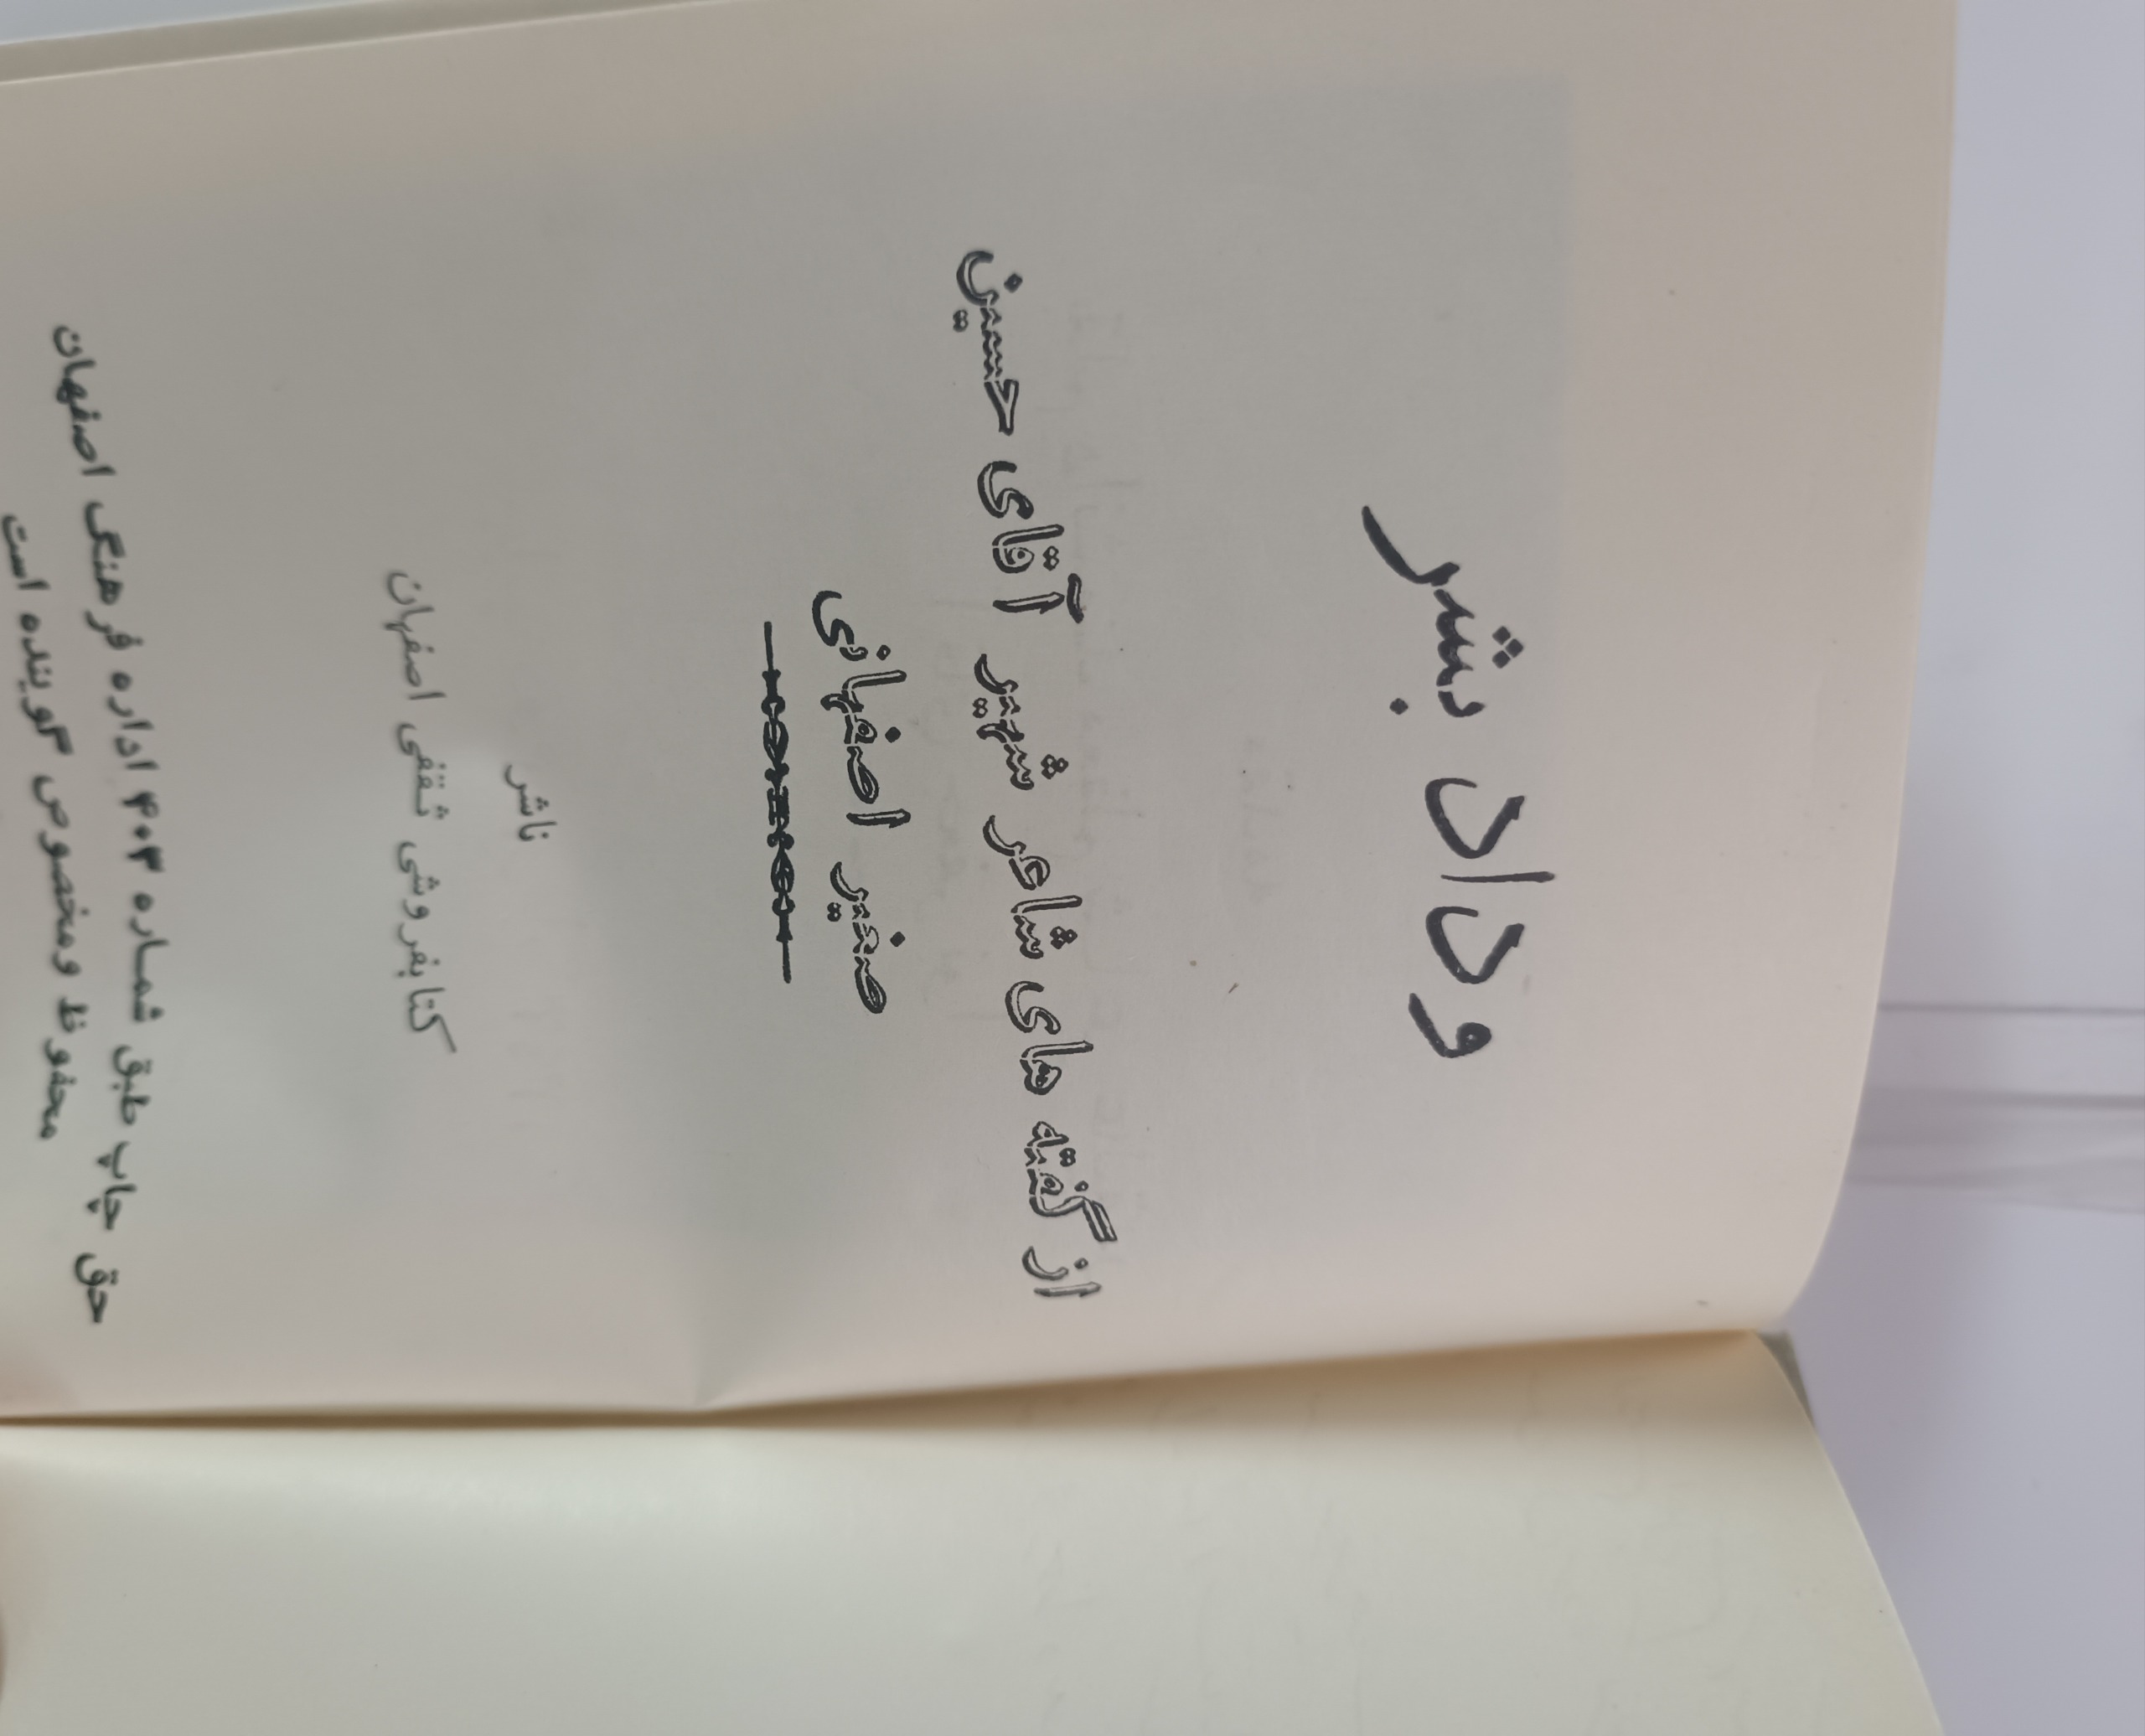 وداد بشر
از گفته های شاعر شهیر آقای حسین
صغیر اصفهانی
ناشر
کتابفروشی ثقفی اصفهان
حق چاپ طبق شماره ۴۰۳ اداره فرهنگ اصفهان
محفوظ ومخصوص گوینده است